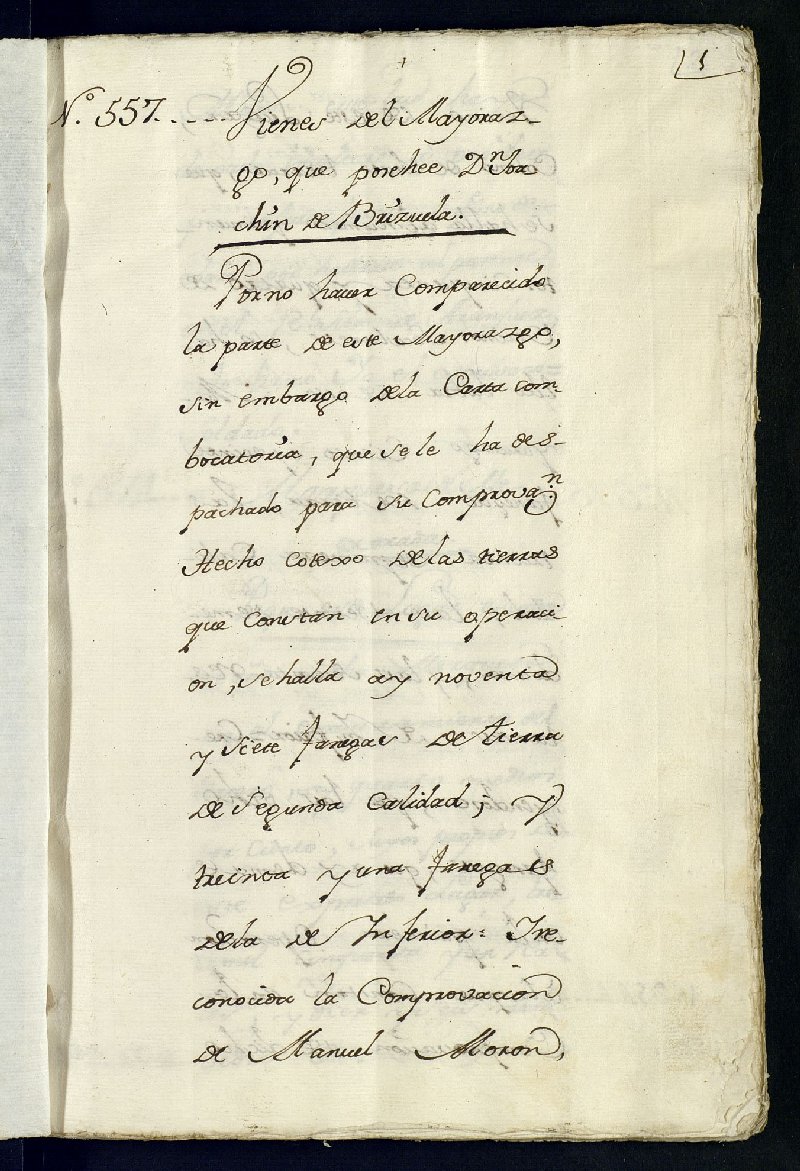 1
N.º 557..... Vienes del Mayoraz-
go, que poséhee D.n Joa
chin de Brizuela.
Por no haver Comparecido
la parte de este Mayorazgo,
sin embargo dela Carta com-
bocatoria, que sele ha des-
pachado para su Comprova.n
Hecho cotexo delas tierras
que Constan en su operaci
on, se halla ay noventa
y siete fanegas de tierra
de Segunda Calidad; y
treinta y una fanegas
dela de Inferior: I re-
conocida la Comprovacion
de Manuel Moron,